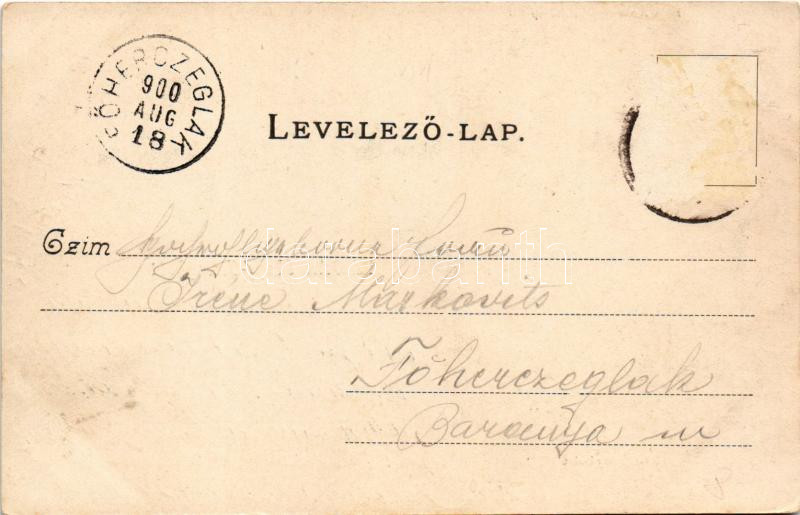 FŐHERCZEGLAK
900
AUG
18
LEVELEZŐ-LAP.
Czim
darabanth
Irene Markovits
Főherczeglak
Baranya m